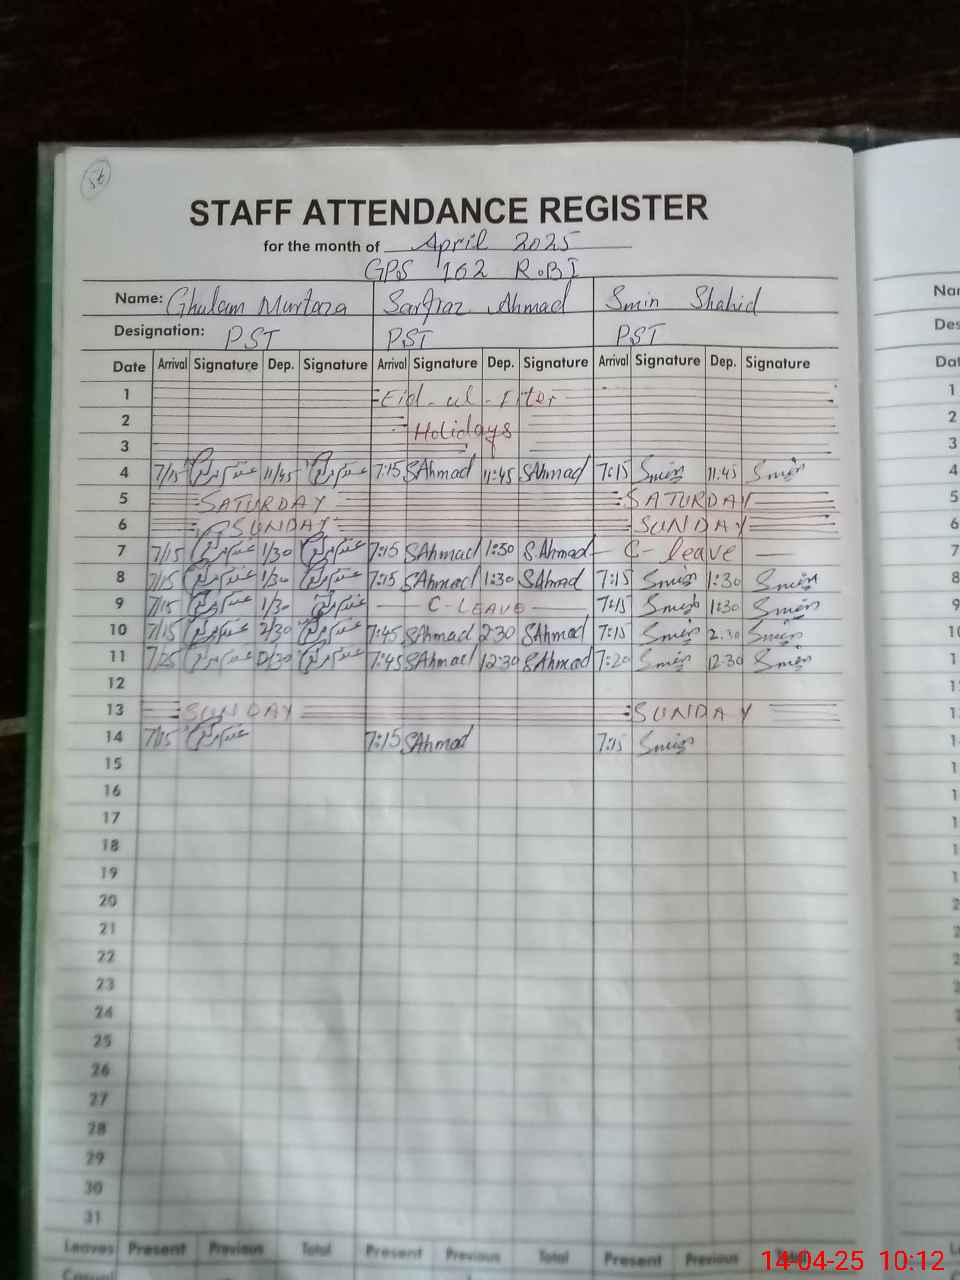 56
STAFF ATTENDANCE REGISTER
for the month of April 2025
GPS 162 R.B I
Name: Ghulam Murtaza Sarfraz Ahmad Smin Shahid
Designation: PST PST PST
Date Arrival Signature Dep. Signature Arrival Signature Dep. Signature Arrival Signature Dep. Signature
1 Eid-ul-Fiter
2 Holidays
3
4 7/15 11/45 7:15 SAhmad 11:45 SAhmad 7:15 Smin 11:45 Smin
5 SATURDAY SATURDAY
6 SUNDAY SUNDAY
7 7/15 1/30 7:15 SAhmad 1:30 SAhmad C-leave
8 7/15 1/30 7:15 SAhmad 1:30 SAhmad 7:15 Smin 1:30 Smin
9 7/15 1/30 C-LEAVE 7:15 Smin 1:30 Smin
10 7/15 2/30 7:45 SAhmad 2:30 SAhmad 7:15 Smin 2:30 Smin
11 7/25 12/30 7:45 SAhmad 12:30 SAhmad 7:20 Smin 12:30 Smin
12
13 SUNDAY SUNDAY
14 7/15 7:15 SAhmad 7:15 Smin
15
16
17
18
19
20
21
22
23
24
25
26
27
28
29
30
31
Leaves Present Previous Total Present Previous Total Present Previous
Casual
14-04-25 10:12